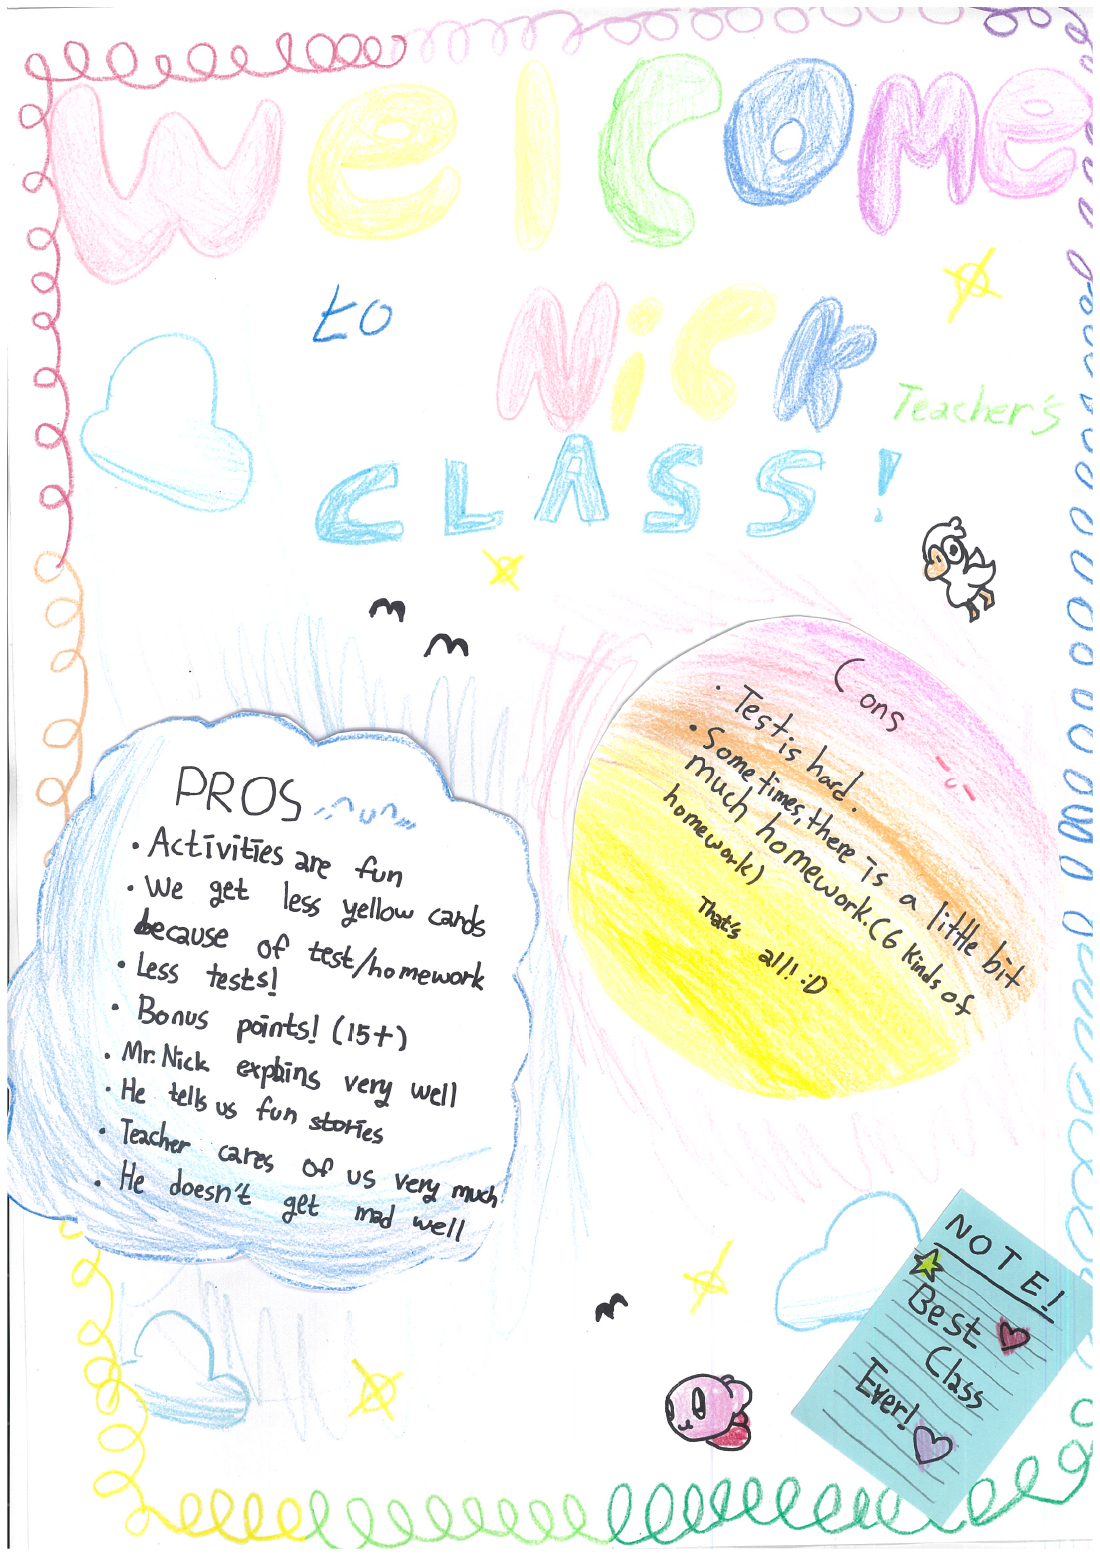 Welcome
to Nick Teacher's
CLASS!
PROS
• Activities are fun
• We get less yellow cards
because of test/homework
• Less tests!
• Bonus points! (15+)
• Mr. Nick explains very well
• He tells us fun stories
• Teacher cares of us very much
• He doesn't get mad well
Cons
• Test is hard.
• Sometimes, there is a little bit
much homework. (6 kinds of
homework)
That's all! :D
NOTE!
Best
Class
Ever!